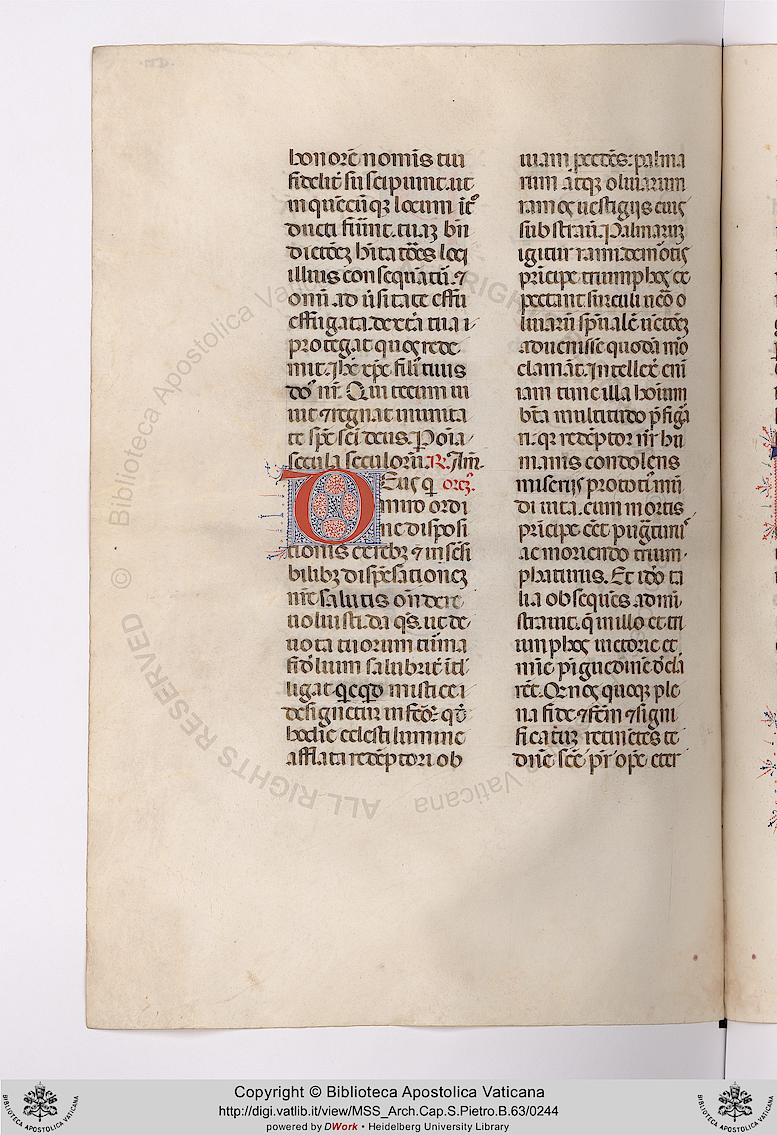 honorē nomīs tui
fidelit̄ suscipiunt. ut
in quēcūqꝫ locum īt᷒
ducti fūint. tuaꝫ bn̄
dictōeꝫ hītatōes loci
illius consequāt̄. ⁊
om̄i aduīsitate effu
effugata. dext̄a tua
protegat quos rede
mit. Ihē xp̄e fili tuus
do᷒ nr̄. Qui tecum ui
uit ⁊ regnat in unita
te sp̄s sc̄i deus. Ꝑ om̄ia
secula seculorū. R. Am̄.
Eus q orō.
miro ordi
ne disposi
tionis et rebꝫ ⁊ insēsi
bilibꝫ dispēsationeꝫ
nr̄e salutis on̄dere
uoluisti. da qs̄. ut de
uota tuorum cūna
fidēlium salubrit̄ ītl
ligat qͥd mistice ī
designetur in fc̄o. qd̄
hodie celesti lumine
afflata redēptori ob
uiam ꝓcedēs. palma
rum atqꝫ oliuarum
ramos uestigijs eius
substrauit. Palmarū
igitur rami. de mortis
principe triumphos ex
pectant. surculi uero o
liuarū sp̄ualē uctōeꝫ
aduenisse quodā mō
clamāt. Intellexit eni
iam tunc illa hoīum
bt̄a multitudo p̄figa
ri. qꝛ redēptor nr̄ hu
manis condolens
miserijs pro toti mū
di uita. cum mortis
principe eēt pugnatur᷒
ac moriendo trium
phaturus. Et idō ta
lia obsequēs admī
strauit. q̄ in illo et tri
umphos uictorie et
mīe pīguedinē decla
rēt. Qͫ nos quoqꝫ ple
na fide ⁊ fc̄m ⁊ signi
ficatū retinētes te
dn̄e sc̄e pr̄ op̄e eter
ALL RIGHTS RESERVED © Biblioteca Apostolica Vaticana
Copyright © Biblioteca Apostolica Vaticana
http://digi.vatlib.it/view/MSS_Arch.Cap.S.Pietro.B.63/0244
powered by DWork • Heidelberg University Library
BIBLIOTECA APOSTOLICA VATICANA
BIBLIOTECA APOSTOLICA VATICANA